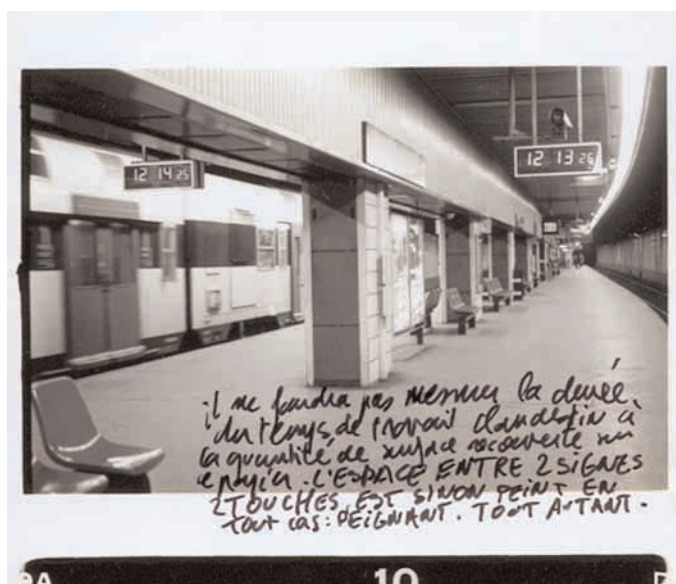 12 14 25
12 13 26
il ne faudra pas mesurer la durée
du temps de travail clandestin à
la quantité de surface recouverte sur
le papier. L'ESPACE ENTRE 2 SIGNES
2 TOUCHES, EST SINON PEINT EN
TOUT CAS: PEIGNANT. TOUT AUTANT.
9A
10